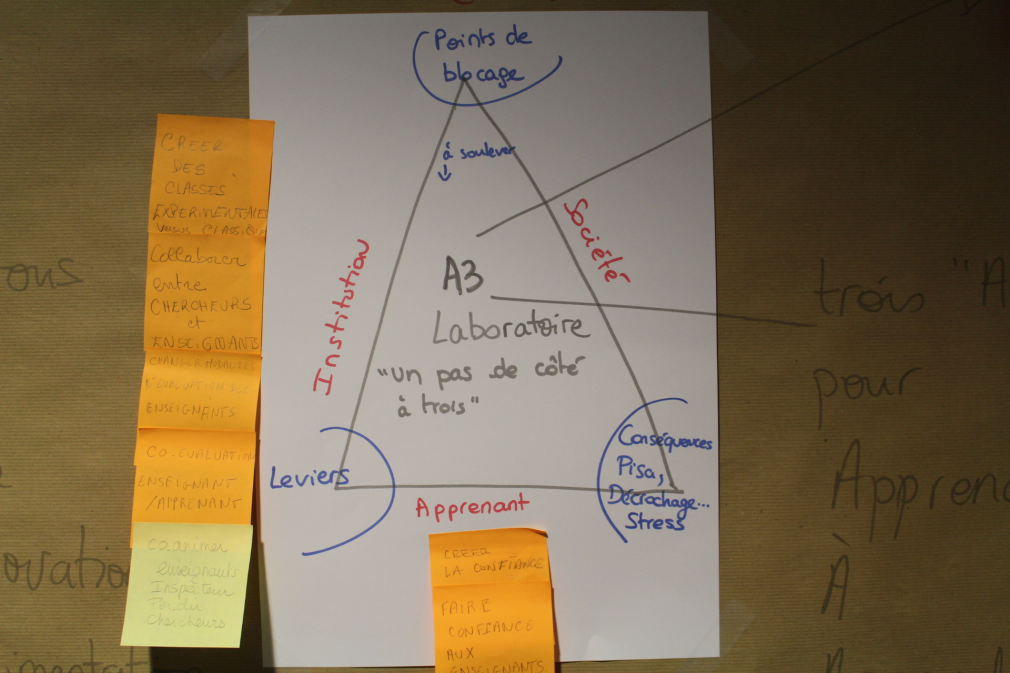 Points de
blocage
à soulever
Institution
Société
A3
Laboratoire
"un pas de côté
à trois"
Leviers
Conséquences
Pisa,
Décrochage...
Stress
Apprenant
CREER
DES
CLASSES
EXPERIMENTALES
Collaborer
entre
CHERCHEURS
et
ENSEIGNANTS
ENSEIGNANTS
CO-EVALUATION
ENSEIGNANT
/APPRENANT
Coanimer
enseignants
Inspecteur
Chercheurs
CREER
LA CONFIANCE
FAIRE
CONFIANCE
AUX
ENSEIGNANTS
trois "A
pour
Appren
À